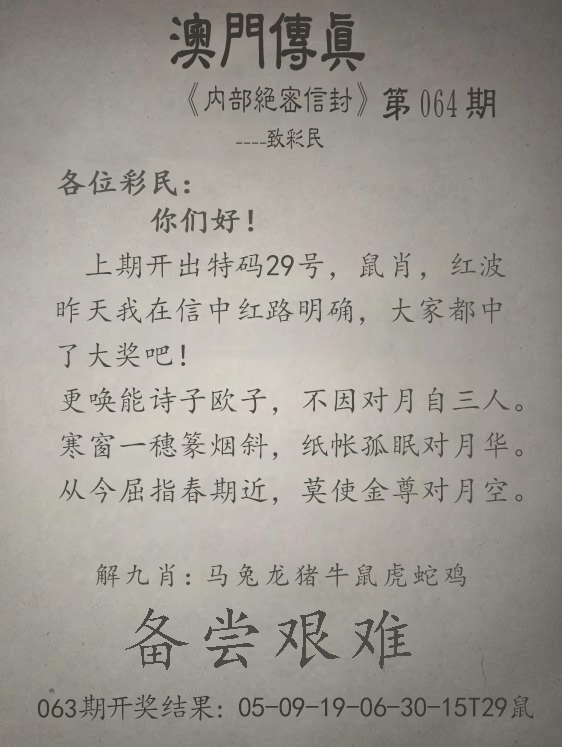 澳門傳眞
《内部絕密信封》第064期
----致彩民
各位彩民：
你们好！
上期开出特码29号，鼠肖，红波
昨天我在信中红路明确，大家都中
了大奖吧！
更唤能诗子欧子，不因对月自三人。
寒窗一穗篆烟斜，纸帐孤眠对月华。
从今屈指春期近，莫使金尊对月空。
解九肖：马兔龙猪牛鼠虎蛇鸡
备尝艰难
063期开奖结果：05-09-19-06-30-15T29鼠